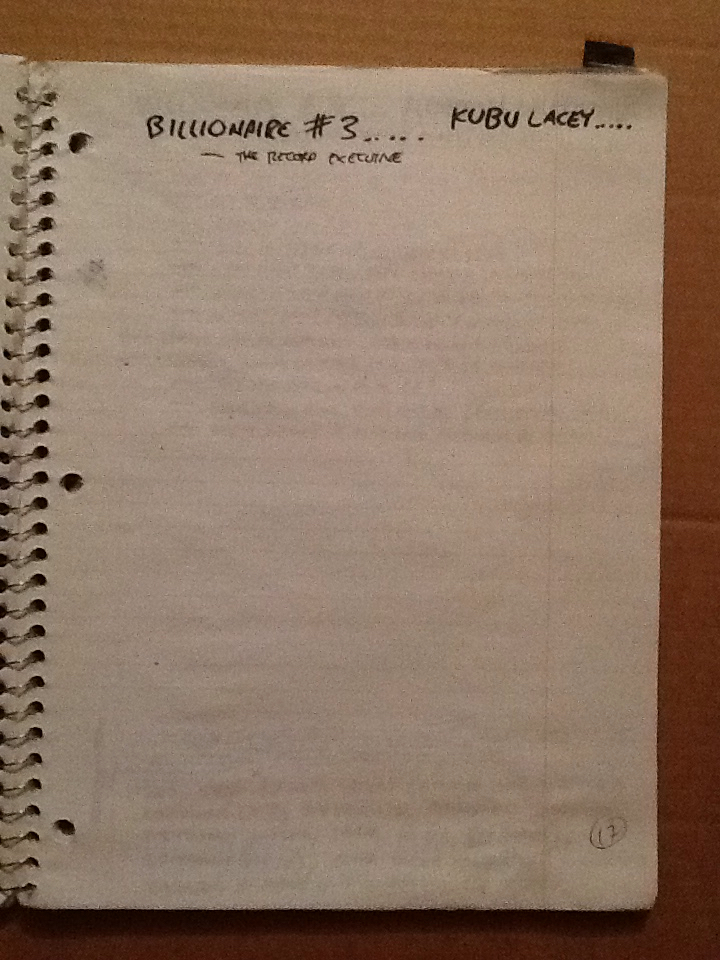 BILLIONAIRE #3..... KUBU LACEY.....
— THE RECORD EXECUTIVE
17